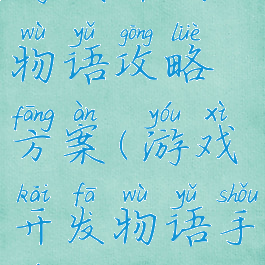 wù yǔ gōng lüè
物语攻略
fāng àn yóu xì
方案(游戏
kāi fā wù yǔ shǒu
开发物语手